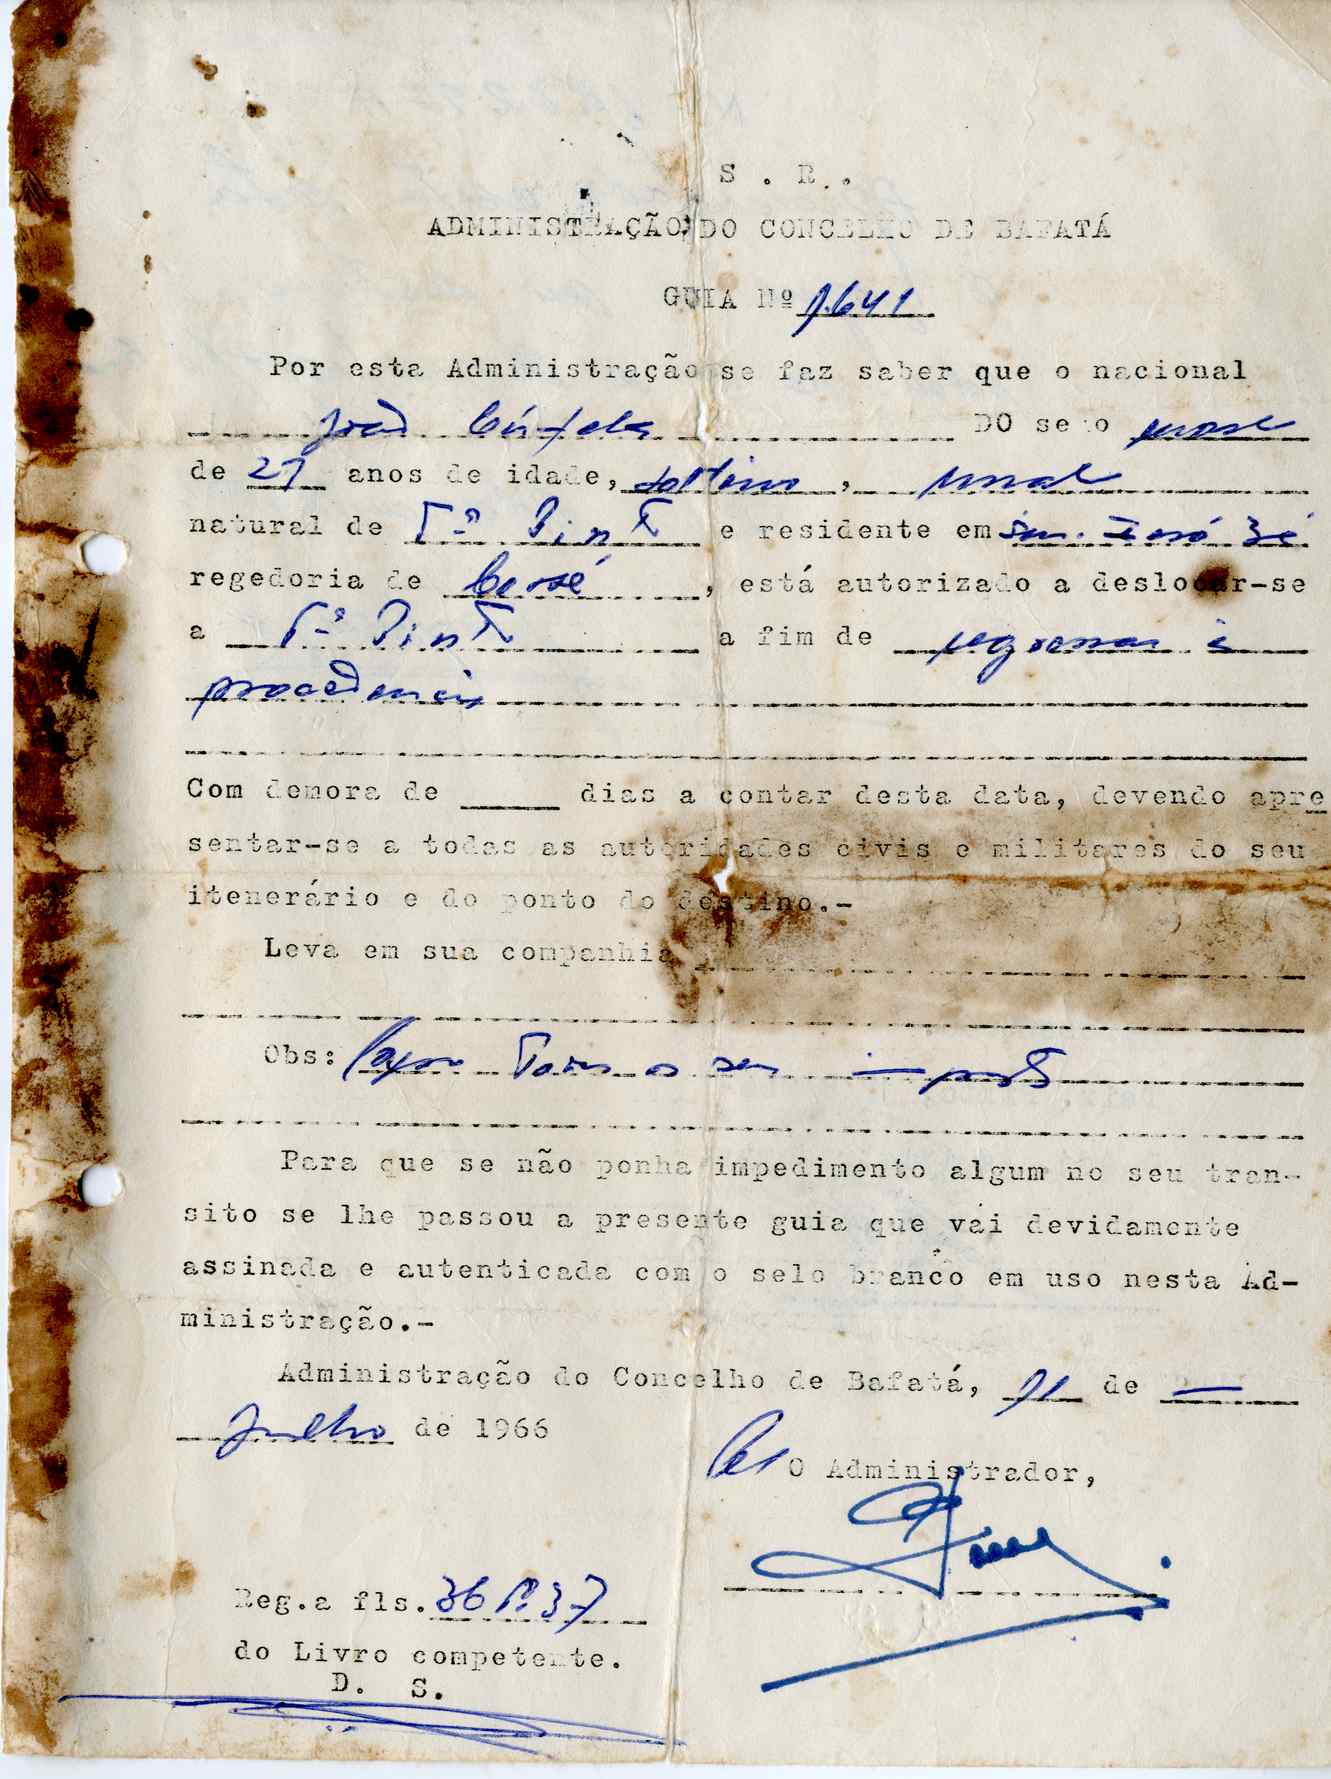 S . R .
ADMINISTRAÇÃO DO CONCELHO DE BAFATÁ
GUIA Nº 1.641
Por esta Administração se faz saber que o nacional
João DO sexo
de 27 anos de idade, solteiro,
natural de e residente em
regedoria de Cossé, está autorizado a deslocar-se
a a fim de regressar à
procedencia
Com demora de dias a contar desta data, devendo apre
sentar-se a todas as autoridades civis e militares do seu
itenerário e do ponto do destino.-
Leva em sua companhia
Obs: o seu imposto
Para que se não ponha impedimento algum no seu tran-
sito se lhe passou a presente guia que vai devidamente
assinada e autenticada com o selo branco em uso nesta Ad-
ministração.-
Administração do Concelho de Bafatá, 11 de
Julho de 1966
O Administrador,
Reg.a fls. 36 37
do Livro competente.
D. S.